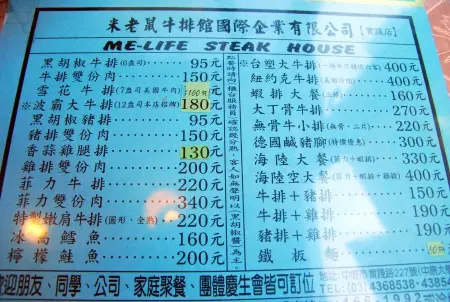 米老鼠牛排館國際企業有限公司【實踐店】
ME-LIFE STEAK HOUSE
黑胡椒牛排(6盎司)……95元
牛排雙份肉……150元
雪花牛排(7盎司美國牛肉)160元
※波霸大牛排(12盎司本店招牌)180元
黑胡椒豬排……95元
豬排雙份肉……150元
香蒜雞腿排……130元
雞排雙份肉……200元
菲力牛排……220元
菲力雙份……340元
特製嫩肩牛排(圓形、全熟)220元
冰島鱈魚……160元
檸檬鮭魚……200元
點餐時請向櫃台服務員
客人如無聲明以黑胡椒醬為主
※台塑大牛排 400元
紐約克牛排 400元
蝦排大餐 160元
大丁骨牛排……270元
無骨牛小排(無骨、二片)220元
德國鹹豬腳(特價優惠)300元
海陸大餐(菲力+蝦排)330元
海陸空大餐(菲力+蝦排+雞排)400元
牛排+豬排……150元
牛排+雞排……190元
牛排+蝦排……190元
鐵板麵
歡迎朋友、同學、公司、家庭聚餐、團體慶生會皆可訂位
地址:中壢市實踐路227號(中原大
電話:(03)4368538·(03)45